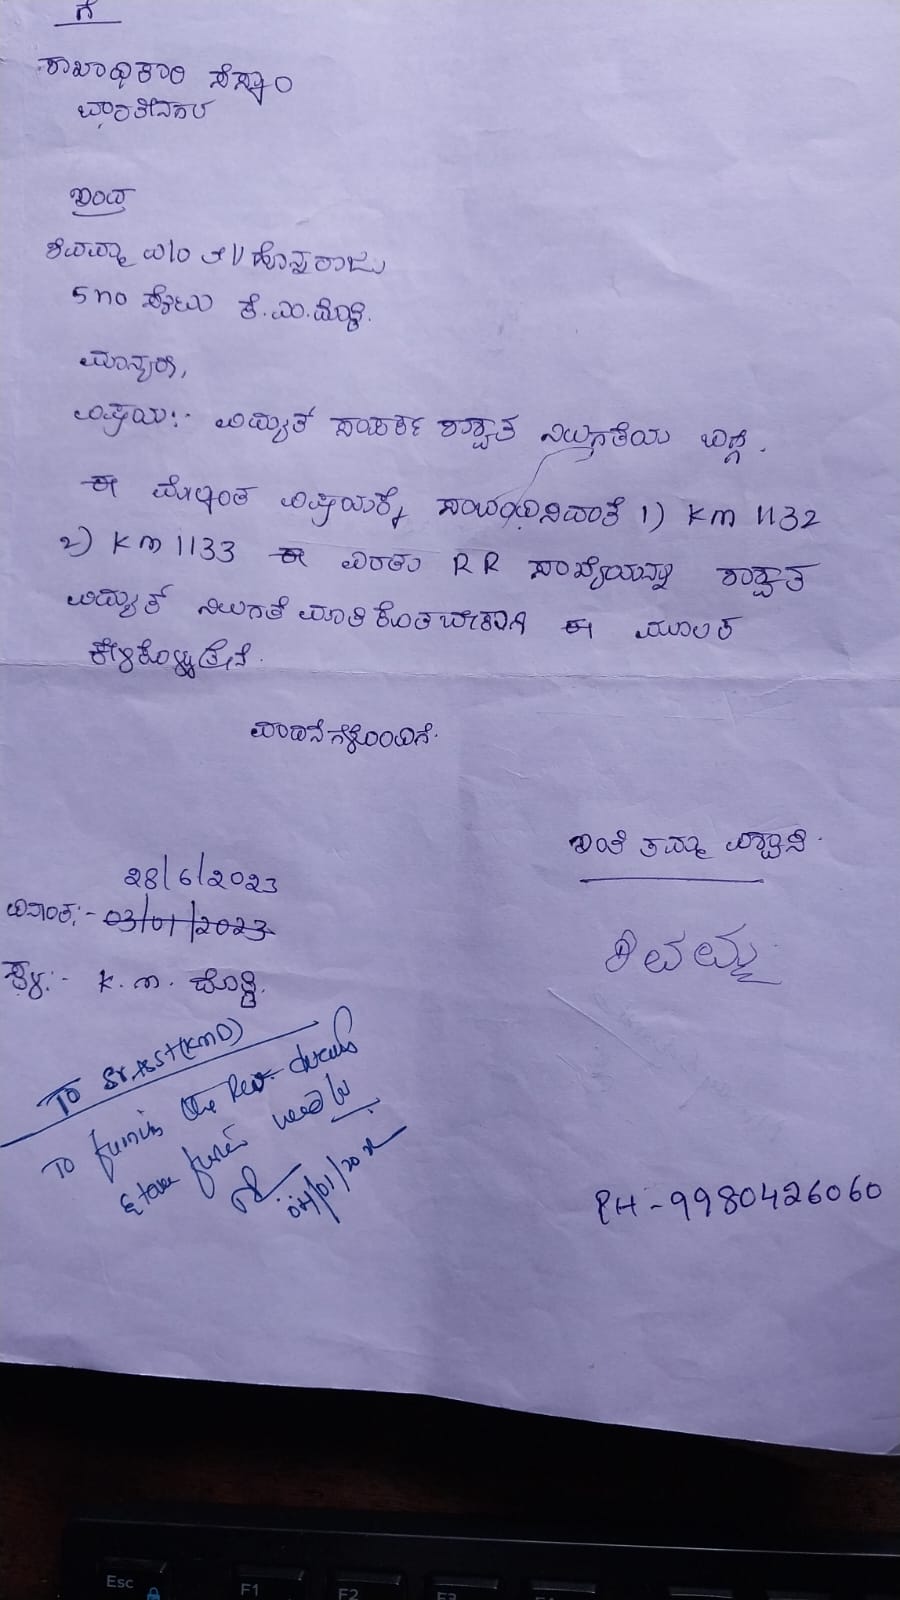 ಗೆ
ಶಾಖಾಧಿಕಾರಿ ಸೆಸ್ಕಾಂ
ಭಾರತೀನಗರ
ಇಂದ
ಶಿವಮ್ಮ W/o ಲೇ// ಹೊನ್ನರಾಜು
5no ಸ್ಕೇಲು ಕೆ.ಎಂ.ದೊಡ್ಡಿ.
ಮಾನ್ಯರೇ,
ವಿಷಯ:- ವಿದ್ಯುತ್ ಸಂಪರ್ಕ ಶಾಶ್ವತ ನಿಲುಗತೆಯ ಬಗ್ಗೆ.
ಈ ಮೇಲ್ಕಂಡ ವಿಷಯಕ್ಕೆ ಸಂಬಂಧಿಸಿದಂತೆ 1) KM 1132
2) KM 1133 ಈ ಎರಡು RR ಸಂಖ್ಯೆಯನ್ನು ಶಾಶ್ವತ
ವಿದ್ಯುತ್ ನಿಲುಗತೆ ಮಾಡಿಕೊಡಬೇಕಾಗಿ ಈ ಮೂಲಕ
ಕೇಳಿಕೊಳ್ಳುತ್ತೇನೆ.
ವಂದನೆಗಳೊಂದಿಗೆ.
ಇಂತಿ ತಮ್ಮ ವಿಶ್ವಾಸಿ.
28/6/2023
ದಿನಾಂಕ:- 03/01/2023
ಶಿವಮ್ಮ
ಸ್ಥಳ:- K.M. ದೊಡ್ಡಿ.
To Sr.Asst(KMD)
To furnish the Rev details
& take further need ful
04/01/20
PH-9980426060
Esc
F1
F2
F3